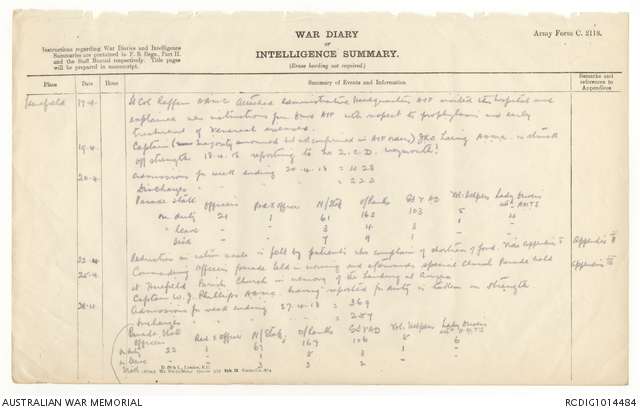 WAR DIARY
or
INTELLIGENCE SUMMARY.
(Erase heading not required.)
Army Form C. 2118.
Instructions regarding War Diaries and Intelligence
Summaries are contained in F. S. Regs., Part II.
and the Staff Manual respectively. Title pages
will be prepared in manuscript.
Place Date Hour Summary of Events and Information Remarks and references to Appendices
Harefield 17.4. Lt Col Raffan AAMC attached Administrative Headquarters AIF visited the hospital and
explained new instructions for AIF with respect to prophylaxis and early
treatment of venereal diseases.
19.4. Captain ( majority announced but not confirmed in AIF orders) Laing AAMC is struck
off strength 18.4.18 reporting to No 2 C.D. Weymouth
20.4 Admissions for week ending 20.4.18 =
Discharges = 222
Parade State Officers Red X Officer N/Staff O/Ranks VAD Vol. Helpers Lady Drivers
On duty 21 1 61 162 103 5 4
" leave - - 3 4 3 1 -
Sick 7 9 1 - -
22.4 Reduction in ration scale is felt by patients who complain of shortness of food. Vide Appendix
25.4 Commanding Officers parade held in morning and afterwards special Church Parade held Appendix
at Harefield Parish Church in memory of the landing at Anzac
Captain W. J. Phillips AAMC having reported for duty is taken on strength
28.4 Admissions for week ending 27.4.18 = 369
Discharges = 287
Parade State
Officers Red X Officer N/Staff O/Ranks VAD Vol. Helpers Lady Drivers
On duty 22 1 67 167 106 6
AUSTRALIAN WAR MEMORIAL
RCDIG1014484